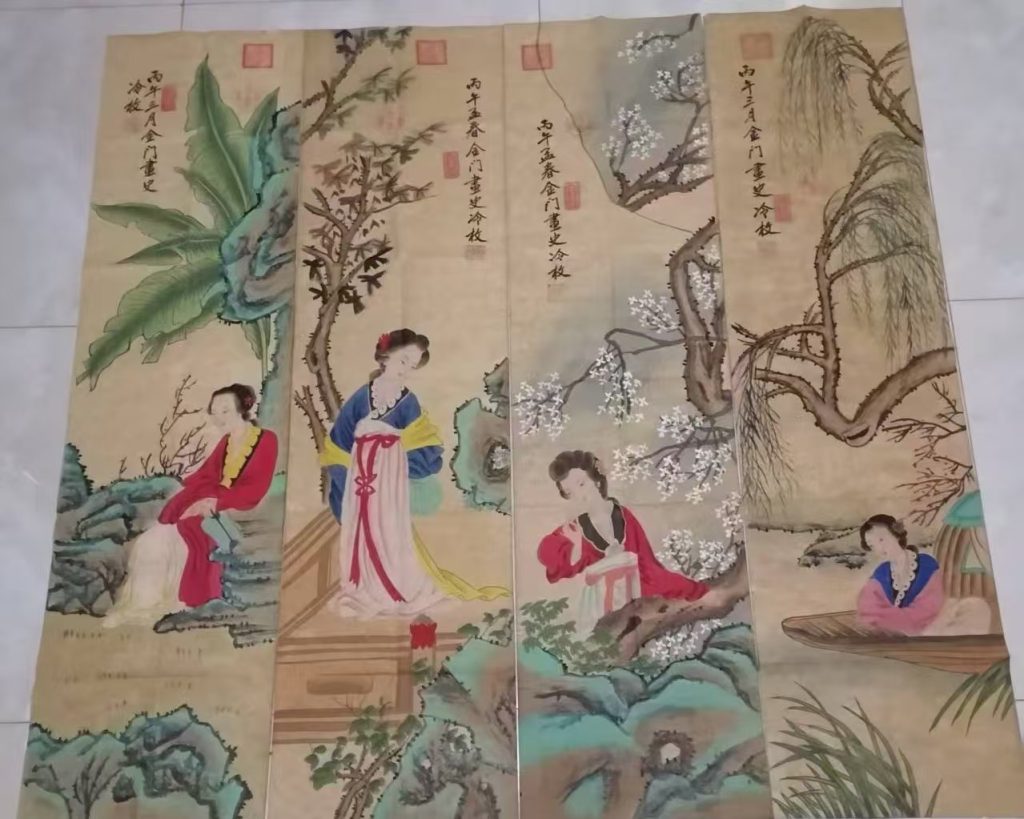 丙午三月金门畫史
冷枚
丙午孟春金门畫史冷枚
丙午孟春金门畫史冷枚
丙午三月金门畫史冷枚